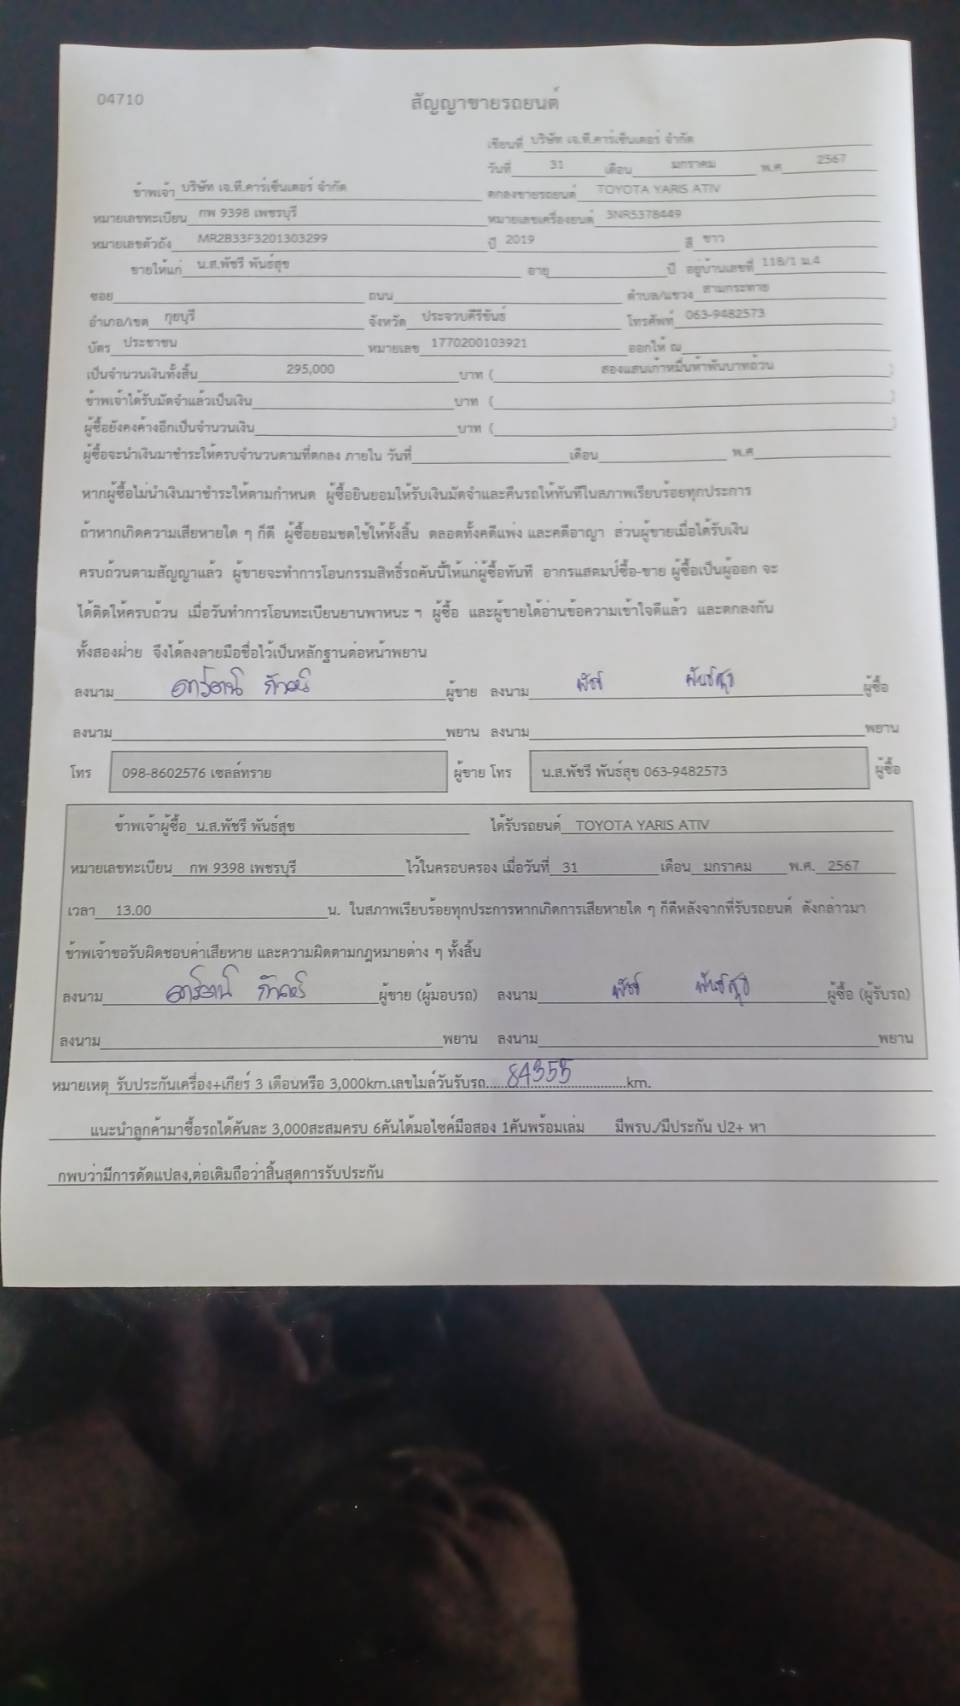 04710
สัญญาขายรถยนต์
เขียนที่ บริษัท เจ.ที.คาร์เซ็นเตอร์ จำกัด
วันที่ 31 เดือน มกราคม พ.ศ 2567
ข้าพเจ้า บริษัท เจ.ที.คาร์เซ็นเตอร์ จำกัด ตกลงขายรถยนต์ TOYOTA YARIS ATIV
หมายเลขทะเบียน กพ 9398 เพชรบุรี หมายเลขเครื่องยนต์ 3NR5378449
หมายเลขตัวถัง MR2B33F3201303299 ปี 2019 สี ขาว
ขายให้แก่ น.ส.พัชรี พันธ์สุข อายุ ปี อยู่บ้านเลขที่ 118/1 ม.4
ซอย ถนน ตำบล/แขวง สามกระทาย
อำเภอ/เขต กุยบุรี จังหวัด ประจวบคีรีขันธ์ โทรศัพท์ 063-9482573
บัตร ประชาชน หมายเลข 1770200103921 ออกให้ ณ
เป็นจำนวนเงินทั้งสิ้น 295,000 บาท ( สองแสนเก้าหมื่นห้าพันบาทถ้วน )
ข้าพเจ้าได้รับมัดจำแล้วเป็นเงิน บาท ( )
ผู้ซื้อยังคงค้างอีกเป็นจำนวนเงิน บาท ( )
ผู้ซื้อจะนำเงินมาชำระให้ครบจำนวนตามที่ตกลง ภายใน วันที่ เดือน พ.ศ
หากผู้ซื้อไม่นำเงินมาชำระให้ตามกำหนด ผู้ซื้อยินยอมให้รับเงินมัดจำและคืนรถให้ทันทีในสภาพเรียบร้อยทุกประการ
ถ้าหากเกิดความเสียหายใด ๆ ก็ดี ผู้ซื้อยอมชดใช้ให้ทั้งสิ้น ตลอดทั้งคดีแพ่ง และคดีอาญา ส่วนผู้ขายเมื่อได้รับเงิน
ครบถ้วนตามสัญญาแล้ว ผู้ขายจะทำการโอนกรรมสิทธิ์รถคันนี้ให้แก่ผู้ซื้อทันที อากรแสตมป์ซื้อ-ขาย ผู้ซื้อเป็นผู้ออก จะ
ได้ติดให้ครบถ้วน เมื่อวันทำการโอนทะเบียนยานพาหนะ ฯ ผู้ซื้อ และผู้ขายได้อ่านข้อความเข้าใจดีแล้ว และตกลงกัน
ทั้งสองฝ่าย จึงได้ลงลายมือชื่อไว้เป็นหลักฐานต่อหน้าพยาน
ลงนาม ผู้ขาย ลงนาม พัชรี พันธ์สุข ผู้ซื้อ
ลงนาม พยาน ลงนาม พยาน
โทร 098-8602576 เซลล์ทราย ผู้ขาย โทร น.ส.พัชรี พันธ์สุข 063-9482573 ผู้ซื้อ
ข้าพเจ้าผู้ซื้อ น.ส.พัชรี พันธ์สุข ได้รับรถยนต์ TOYOTA YARIS ATIV
หมายเลขทะเบียน กพ 9398 เพชรบุรี ไว้ในครอบครอง เมื่อวันที่ 31 เดือน มกราคม พ.ศ. 2567
เวลา 13.00 น. ในสภาพเรียบร้อยทุกประการหากเกิดการเสียหายใด ๆ ก็ดีหลังจากที่รับรถยนต์ ดังกล่าวมา
ข้าพเจ้าขอรับผิดชอบค่าเสียหาย และความผิดตามกฎหมายต่าง ๆ ทั้งสิ้น
ลงนาม ผู้ขาย (ผู้มอบรถ) ลงนาม พัชรี พันธ์สุข ผู้ซื้อ (ผู้รับรถ)
ลงนาม พยาน ลงนาม พยาน
หมายเหตุ รับประกันเครื่อง+เกียร์ 3 เดือนหรือ 3,000km.เลขไมล์วันรับรถ......84355......km.
แนะนำลูกค้ามาซื้อรถได้คันละ 3,000สะสมครบ 6คันได้มอไซค์มือสอง 1คันพร้อมเล่ม มีพรบ./มีประกัน ป2+ หา
กพบว่ามีการดัดแปลง,ต่อเติมถือว่าสิ้นสุดการรับประกัน